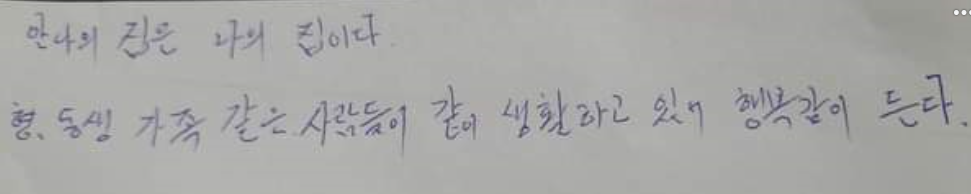 안나의 집은 나의 집이다.
형, 동생 가족 같은 사람들이 같이 생활하고 있어 행복감이 든다.